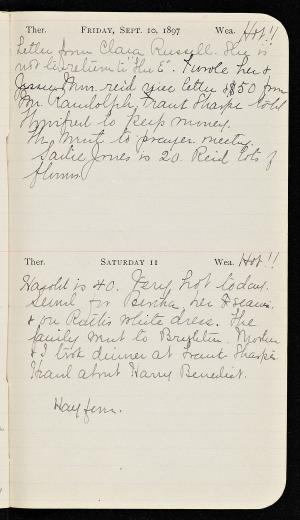 Ther. FRIDAY, SEPT. 10, 1897 Wea. Hot!!
Letter from Clara Russell. She is
not to return to "Hu E". I wrote her &
Jessie. Mrs. rec'd nice letter & $50 from
Mr. Randolph, Frank Sharpe told
Winifred to keep money.
M. went to prayer meeting
Sadie Jones is 20. Rec'd lots of
Ther. SATURDAY 11 Wea. Hot!!
Harold is 40. Very hot today.
Sewed for Bertha, her
& on Ruth's white dress. The
family went to Brighton. Mother
& I took dinner at Frank Sharpe's
Heard about Harry Benedict.
Hay fever.